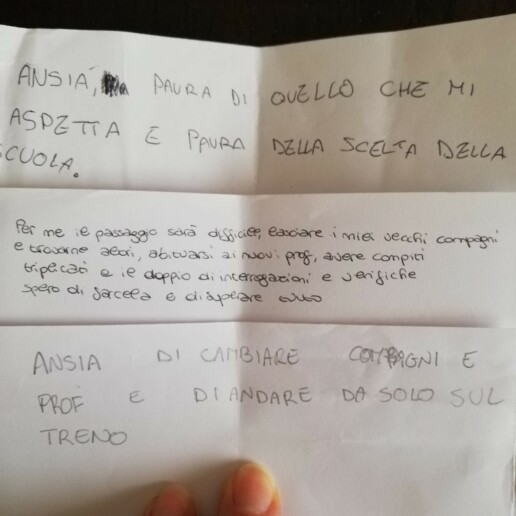 ANSIA, PAURA DI QUELLO CHE MI
ASPETTA E PAURA DELLA SCELTA DELLA
SCUOLA.
Per me il passaggio sarà difficile, lasciare i miei vecchi compagni
e trovarne altri, abituarsi ai nuovi prof, avere compiti
triplicati e il doppio di interrogazioni e verifiche
spero di farcela e di superare tutto
ANSIA DI CAMBIARE COMPAGNI E
PROF E DI ANDARE DA SOLO SUL
TRENO